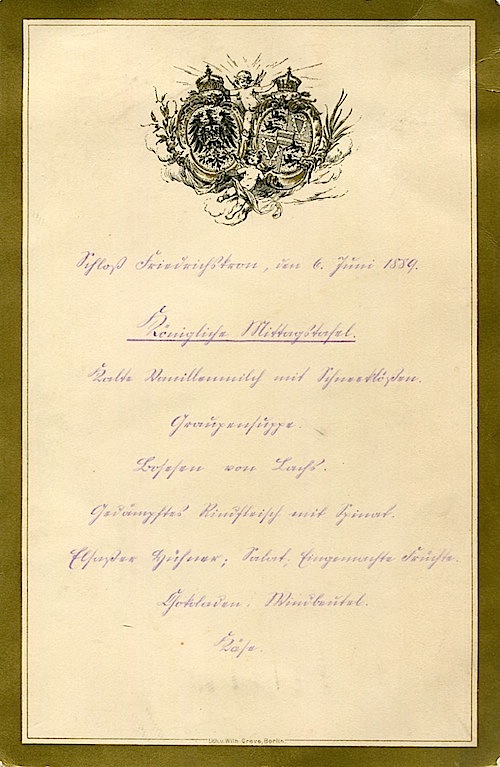 Schloß Friedrichskron, den 6. Juni 1889.
Königliche Mittagstafel.
Kalte Vanillenmilch mit Schneeklößen.
Graupensuppe.
von Lachs.
Gedämpftes Rindfleisch mit Spinat.
Elsaßer Hühner; Salat, Eingemachte Früchte.
Windbeutel.
Käse.
Lith. v. Wilh. Greve, Berlin.